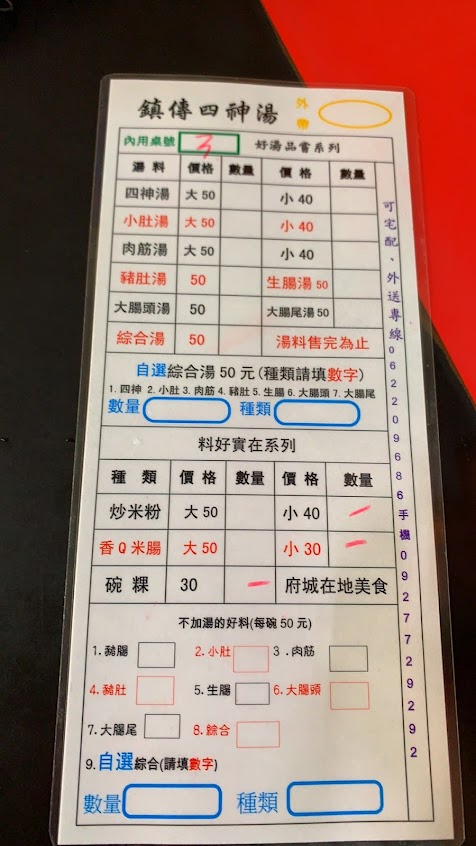 鎮傳四神湯 外帶
內用桌號 3 好湯品嘗系列
湯 料 價格 數量 價 格 數量
四神湯 大 50 小 40
小肚湯 大 50 小 40
肉筋湯 大 50 小 40
豬肚湯 50 生腸湯 50
大腸頭湯 50 大腸尾湯 50
綜合湯 50 湯料售完為止
自選綜合湯 50 元(種類請填數字)
1. 四神 2. 小肚 3. 肉筋 4. 豬肚 5. 生腸 6. 大腸頭 7. 大腸尾
數量 種類
料好實在系列
種 類 價 格 數量 價 格 數量
炒米粉 大 50 小 40
香Q米腸 大 50 小 30
碗 粿 30 府城在地美食
不加湯的好料(每碗 50 元)
1. 豬腸 2. 小肚 3 . 肉筋
4. 豬肚 5. 生腸 6. 大腸頭
7. 大腸尾 8. 綜合
9. 自選綜合(請填數字)
數量 種類
可宅配、外送專線062209686手機0927729292